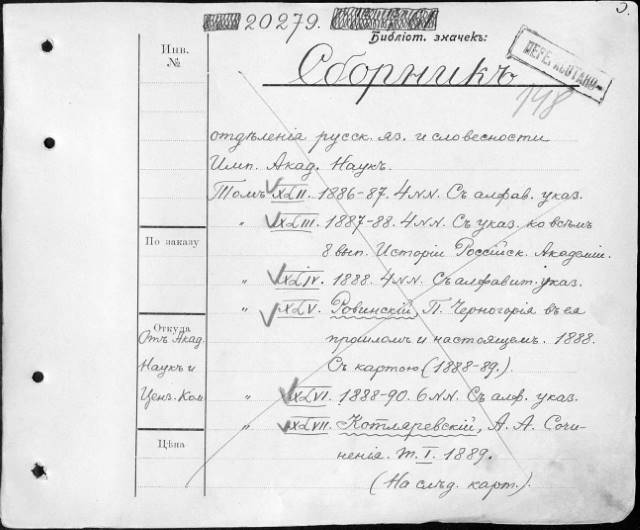 20279.
Библіот. значекъ:
Сборникъ
ПЕРЕРАБОТАНО
148
Инв.
№
отдѣленія русск. яз. и словесности
Имп. Акад. Наукъ.
Томъ XLII. 1886-87. 4 NN. Съ алфав. указ.
" XLIII. 1887-88. 4 NN. Съ указ. ко всѣмъ
8 вып. Исторіи Россійск. Академіи.
По заказу
" XLIV. 1888. 4 NN. Съ алфавит. указ.
" XLV. Ровинскій, П. Черногорія въ ея
прошломъ и настоящемъ. 1888.
Съ картою (1888-89.).
Откуда
Отъ Акад.
Наукъ и
Ценз. Ком
" XLVI. 1888-90. 6 NN. Съ алф. указ.
" XLVII. Котляревскій, А. А. Сочи-
ненія. т. I. 1889.
(На слѣд. карт.).
Цѣна